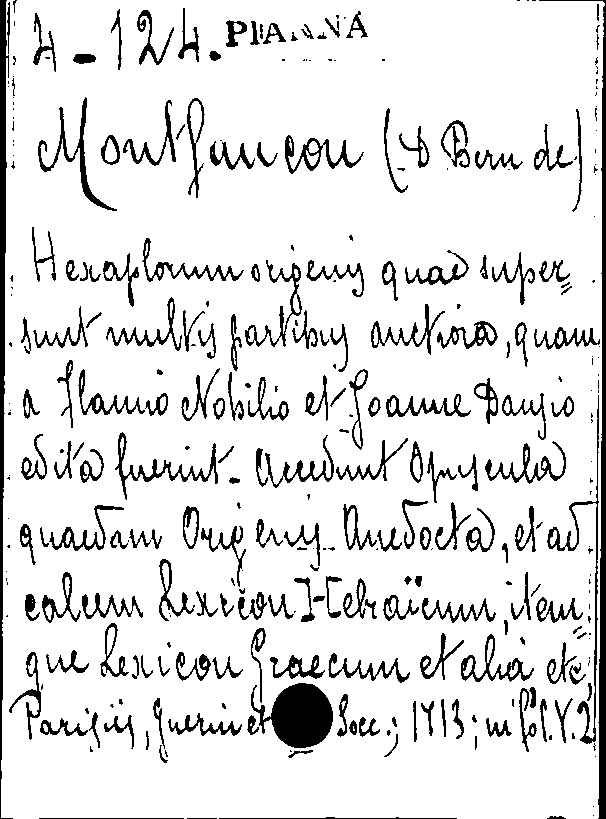 4-124. PIANNA
Montfaucon (D Bern de)
Hexaplorum origenis quae super=
sunt multis partibus auctiora, quam
a Flamio Nobilio et Joanne Dausio
edita fuerint. Accedunt Opuscula
quaedam Origenis Anedocta, et ad
calcem Lexicon Hebraïcum, item=
que Lexicon Graecum et alia etc,
Parisiis, Guerin et Socc.; 1713; in fº. V. 2